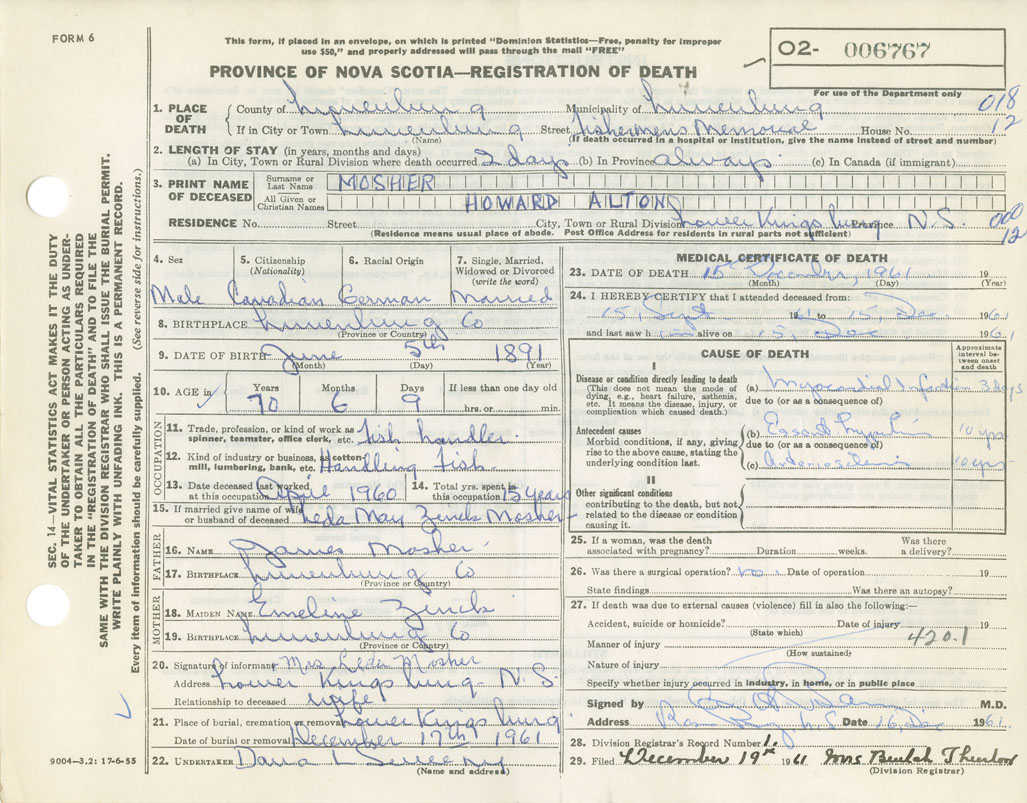 FORM 6
This form, if placed in an envelope, on which is printed "Dominion Statistics—Free, penalty for improper
use $50," and properly addressed will pass through the mail "FREE"
PROVINCE OF NOVA SCOTIA—REGISTRATION OF DEATH
02- 006767
For use of the Department only
018
12
1. PLACE OF DEATH
County of Lunenburg Municipality of Lunenburg
If in City or Town Lunenburg Street Fishermens Memorial House No.
(Name) (If death occurred in a hospital or institution, give the name instead of street and number)
2. LENGTH OF STAY (in years, months and days)
(a) In City, Town or Rural Division where death occurred 2 days (b) In Province always (c) In Canada (if immigrant)
3. PRINT NAME OF DECEASED
Surname or Last Name MOSHER
All Given or Christian Names HOWARD ALTON
RESIDENCE No. Street City, Town or Rural Division Lower Kingsburg Province N.S.
000
12
(Residence means usual place of abode. Post Office Address for residents in rural parts not sufficient)
SEC. 14—VITAL STATISTICS ACT MAKES IT THE DUTY
OF THE UNDERTAKER OR PERSON ACTING AS UNDER-
TAKER TO OBTAIN ALL THE PARTICULARS REQUIRED
IN THE "REGISTRATION OF DEATH" AND TO FILE THE
SAME WITH THE DIVISION REGISTRAR WHO SHALL ISSUE THE BURIAL PERMIT.
WRITE PLAINLY WITH UNFADING INK. THIS IS A PERMANENT RECORD.
Every item of information should be carefully supplied. (See reverse side for instructions.)
4. Sex 5. Citizenship (Nationality) 6. Racial Origin 7. Single, Married, Widowed or Divorced (write the word)
Male Canadian German Married
8. BIRTHPLACE Lunenburg Co
(Province or Country)
9. DATE OF BIRTH June 5th 1891
(Month) (Day) (Year)
10. AGE in Years Months Days If less than one day old
70 6 9 hrs. or min.
OCCUPATION
11. Trade, profession, or kind of work as spinner, teamster, office clerk, etc. fish handler
12. Kind of industry or business, as cotton-mill, lumbering, bank, etc. Handling Fish
13. Date deceased last worked at this occupation April 1960 14. Total yrs. spent in this occupation 15 years
15. If married give name of wife or husband of deceased Leda May Zinck Mosher
FATHER
16. NAME James Mosher
17. BIRTHPLACE Lunenburg Co
(Province or Country)
MOTHER
18. MAIDEN NAME Emeline Zinck
19. BIRTHPLACE Lunenburg Co
(Province or Country)
20. Signature of informant Mrs Leda Mosher
Address Lower Kingsburg N.S.
Relationship to deceased wife
21. Place of burial, cremation or removal Lower Kingsburg
Date of burial or removal December 17th 1961
22. UNDERTAKER
(Name and address)
9004—3.2: 17-6-55
MEDICAL CERTIFICATE OF DEATH
23. DATE OF DEATH 15 December, 1961 19
(Month) (Day) (Year)
24. I HEREBY CERTIFY that I attended deceased from:
15, Sept 1961 to 15, Dec 1961
and last saw h alive on 15, Dec 1961
CAUSE OF DEATH
Approximate interval between onset and death
I
Disease or condition directly leading to death
(This does not mean the mode of dying, e.g., heart failure, asthenia, etc. It means the disease, injury, or complication which caused death.)
(a) Myocardial Infarction 3 days
due to (or as a consequence of)
Antecedent causes
Morbid conditions, if any, giving rise to the above cause, stating the underlying condition last.
(b) 10 yrs
due to (or as a consequence of)
(c) Arteriosclerosis 10 yrs
II
Other significant conditions
contributing to the death, but not related to the disease or condition causing it.
25. If a woman, was the death associated with pregnancy? Duration weeks. Was there a delivery?
26. Was there a surgical operation? no Date of operation 19
State findings Was there an autopsy?
27. If death was due to external causes (violence) fill in also the following:—
Accident, suicide or homicide? Date of injury 19
(State which)
420.1
Manner of injury
(How sustained)
Nature of injury
Specify whether injury occurred in industry, in home, or in public place
Signed by M.D.
Address N.S. Date 16, Dec 1961.
28. Division Registrar's Record Number 1.
29. Filed December 19th 1961 Mrs Beulah
(Division Registrar)